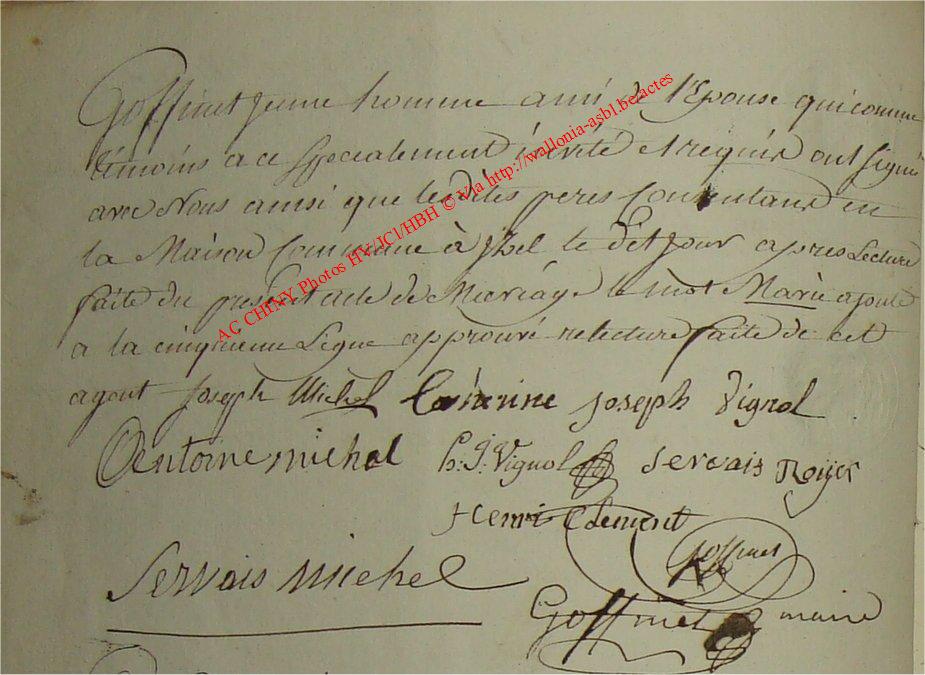 Goffinet jeune homme ami de l'Epouse qui comme
témoins a ce Specialement invité et requis ont Signé
avec Nous ainsi que lesdites peres Consentans en
la Maison Commune à jzel le dit Jour apres Lecture
faite du present acte de Mariage le mot Marie ajouté
a la cinquieme Ligne approuvé relecture faite de cet
agout Joseph Michel Catherine joseph Vignol
Oentoine michel h: j: Vignol Servais Roijer
Henri Clement
Goffinet
Servais Michel
Goffinet maire
AC CHINY Photos HV/JCl/HBH © Via http://wallonia-asbl.be/actes